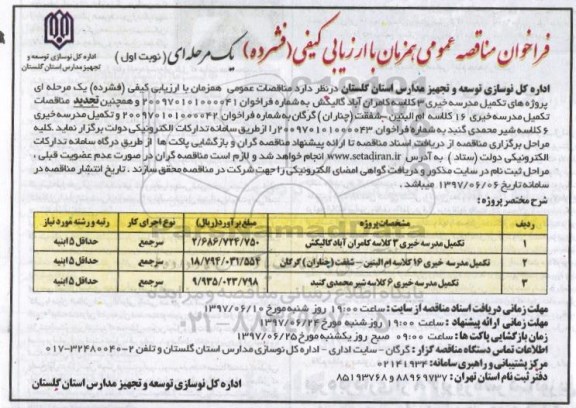 فراخوان مناقصه عمومی همزمان با ارزیابی کیفی (فشرده) یک مرحله‌ای (نوبت اول)
اداره کل نوسازی توسعه و
تجهیز مدارس استان گلستان
اداره کل نوسازی توسعه و تجهیز مدارس استان گلستان درنظر دارد مناقصات عمومی همزمان با ارزیابی کیفی (فشرده) یک مرحله ای
پروژه های تکمیل مدرسه خیری ۳ کلاسه کامران آباد گالیکش به شماره فراخوان ۲۰۰۹۷۰۱۰۱۰۰۰۰۴۱ و همچنین تجدید مناقصات
تکمیل مدرسه خیری ۱۶ کلاسه ام البنین - شفقت (چناران) گرگان به شماره فراخوان ۲۰۰۹۷۰۱۰۱۰۰۰۰۴۲ و تکمیل مدرسه خیری
۶ کلاسه شیر محمدی گنبد به شماره فراخوان ۲۰۰۹۷۰۱۰۱۰۰۰۰۴۳ را از طریق سامانه تدارکات الکترونیکی دولت برگزار نماید. کلیه
مراحل برگزاری مناقصه از دریافت اسناد مناقصه تا ارائه پیشنهاد مناقصه گران و بازگشایی پاکت ها از طریق درگاه سامانه تدارکات
الکترونیکی دولت (ستاد) به آدرس www.setadiran.ir انجام خواهد شد و لازم است مناقصه گران در صورت عدم عضویت قبلی،
مراحل ثبت نام در سایت مذکور و دریافت گواهی امضای الکترونیکی را جهت شرکت در مناقصه محقق سازند. تاریخ انتشار مناقصه در
سامانه تاریخ ۱۳۹۷/۰۶/۰۶ میباشد.
شرح مختصر پروژه:
ردیف مشخصات پروژه مبلغ برآورد (ریال) نوع اجرای کار رتبه و رشته مورد نیاز
۱ تکمیل مدرسه خیری ۳ کلاسه کامران آباد گالیکش ۲/۶۸۶/۷۲۴/۷۵۰ سرجمع حداقل ۵ ابنیه
۲ تکمیل مدرسه خیری ۱۶ کلاسه ام البنین - شفقت (چناران) گرگان ۱۸/۷۹۴/۰۳۱/۵۵۴ سرجمع حداقل ۵ ابنیه
۳ تکمیل مدرسه خیری ۶ کلاسه شیر محمدی گنبد ۹/۹۳۵/۰۲۳/۷۹۸ سرجمع حداقل ۵ ابنیه
مهلت زمانی دریافت اسناد مناقصه از سایت: ساعت ۱۹:۰۰ روز شنبه مورخ ۱۳۹۷/۰۶/۱۰
مهلت زمانی ارائه پیشنهاد: ساعت ۱۹:۰۰ روز شنبه مورخ ۱۳۹۷/۰۶/۲۴
زمان بازگشایی پاکت ها: ساعت ۰۹:۰۰ صبح روز یکشنبه مورخ ۱۳۹۷/۰۶/۲۵
اطلاعات تماس دستگاه مناقصه گزار: گرگان - سایت اداری - اداره کل نوسازی مدارس استان گلستان و تلفن ۲-۳۲۴۸۰۰۴۰-۰۱۷
مرکز پشتیبانی و راهبری سامانه: ۰۲۱۴۱۹۳۴
دفتر ثبت نام استان تهران: ۸۸۹۶۹۷۳۷ و ۸۵۱۹۳۷۶۸
اداره کل نوسازی توسعه و تجهیز مدارس استان گلستان